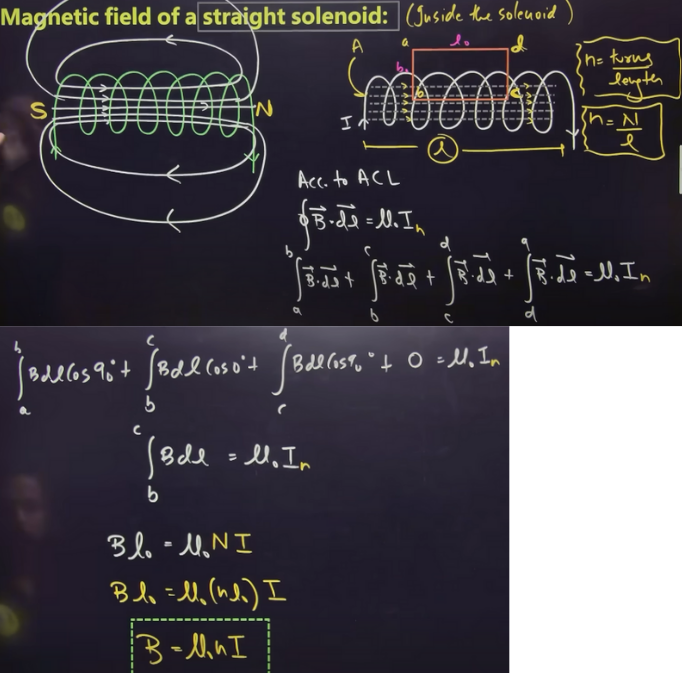 Magnetic field of a straight solenoid: (Inside the solenoid)
S N
A a l₀ d
b₀
I
l
n = turns/length
n = N/l
Acc. to ACL
∮B⃗·dl⃗ = μ₀Iₙ
∫ₐᵇ B⃗·dl⃗ + ∫ᵦᶜ B⃗·dl⃗ + ∫꜀ᵈ B⃗·dl⃗ + ∫_d^a B⃗·dl⃗ = μ₀Iₙ
∫ₐᵇ Bdl Cos90° + ∫_b^c Bdl Cos0° + ∫_c^d Bdl Cos90° + 0 = μ₀Iₙ
∫_b^c Bdl = μ₀Iₙ
Bl₀ = μ₀NI
Bl₀ = μ₀(nl₀)I
B = μ₀nI